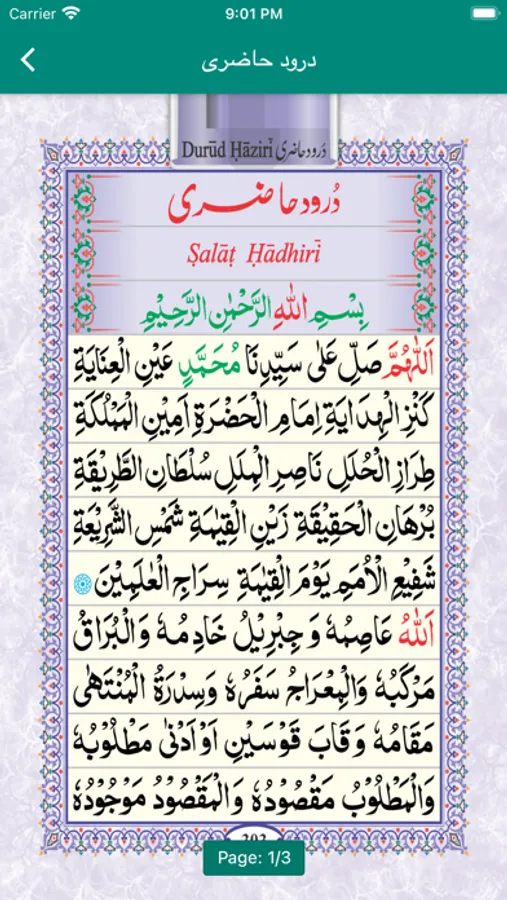 Carrier 9:01 PM
درود حاضری
Durūd Ḥāzirī دُرود حاضری
دُرود حاضری
Ṣalāṭ Ḥādhirī
بِسْمِ اللهِ الرَّحْمٰنِ الرَّحِيْمِ
اَللّٰهُمَّ صَلِّ عَلٰى سَيِّدِنَا مُحَمَّدٍ عَيْنِ الْعِنَايَةِ
كَنْزِ الْهِدَايَةِ اِمَامِ الْحَضْرَةِ اَمِيْنِ الْمَمْلَكَةِ
طِرَازِ الْحُلَلِ نَاصِرِ الْمِلَلِ سُلْطَانِ الطَّرِيْقَةِ
بُرْهَانِ الْحَقِيْقَةِ زَيْنِ الْقِيٰمَةِ شَمْسِ الشَّرِيْعَةِ
شَفِيْعِ الْاُمَمِ يَوْمَ الْقِيٰمَةِ سِرَاجِ الْعٰلَمِيْنَ
اَللهُ عَاصِمُهٗ وَ جِبْرِيْلُ خَادِمُهٗ وَالْبُرَاقُ
مَرْكَبُهٗ وَالْمِعْرَاجُ سَفَرُهٗ وَسِدْرَةُ الْمُنْتَهٰى
مَقَامُهٗ وَ قَابَ قَوْسَيْنِ اَوْ اَدْنٰى مَطْلُوْبُهٗ
وَالْمَطْلُوْبُ مَقْصُوْدُهٗ وَالْمَقْصُوْدُ مَوْجُوْدُهٗ
Page: 1/3